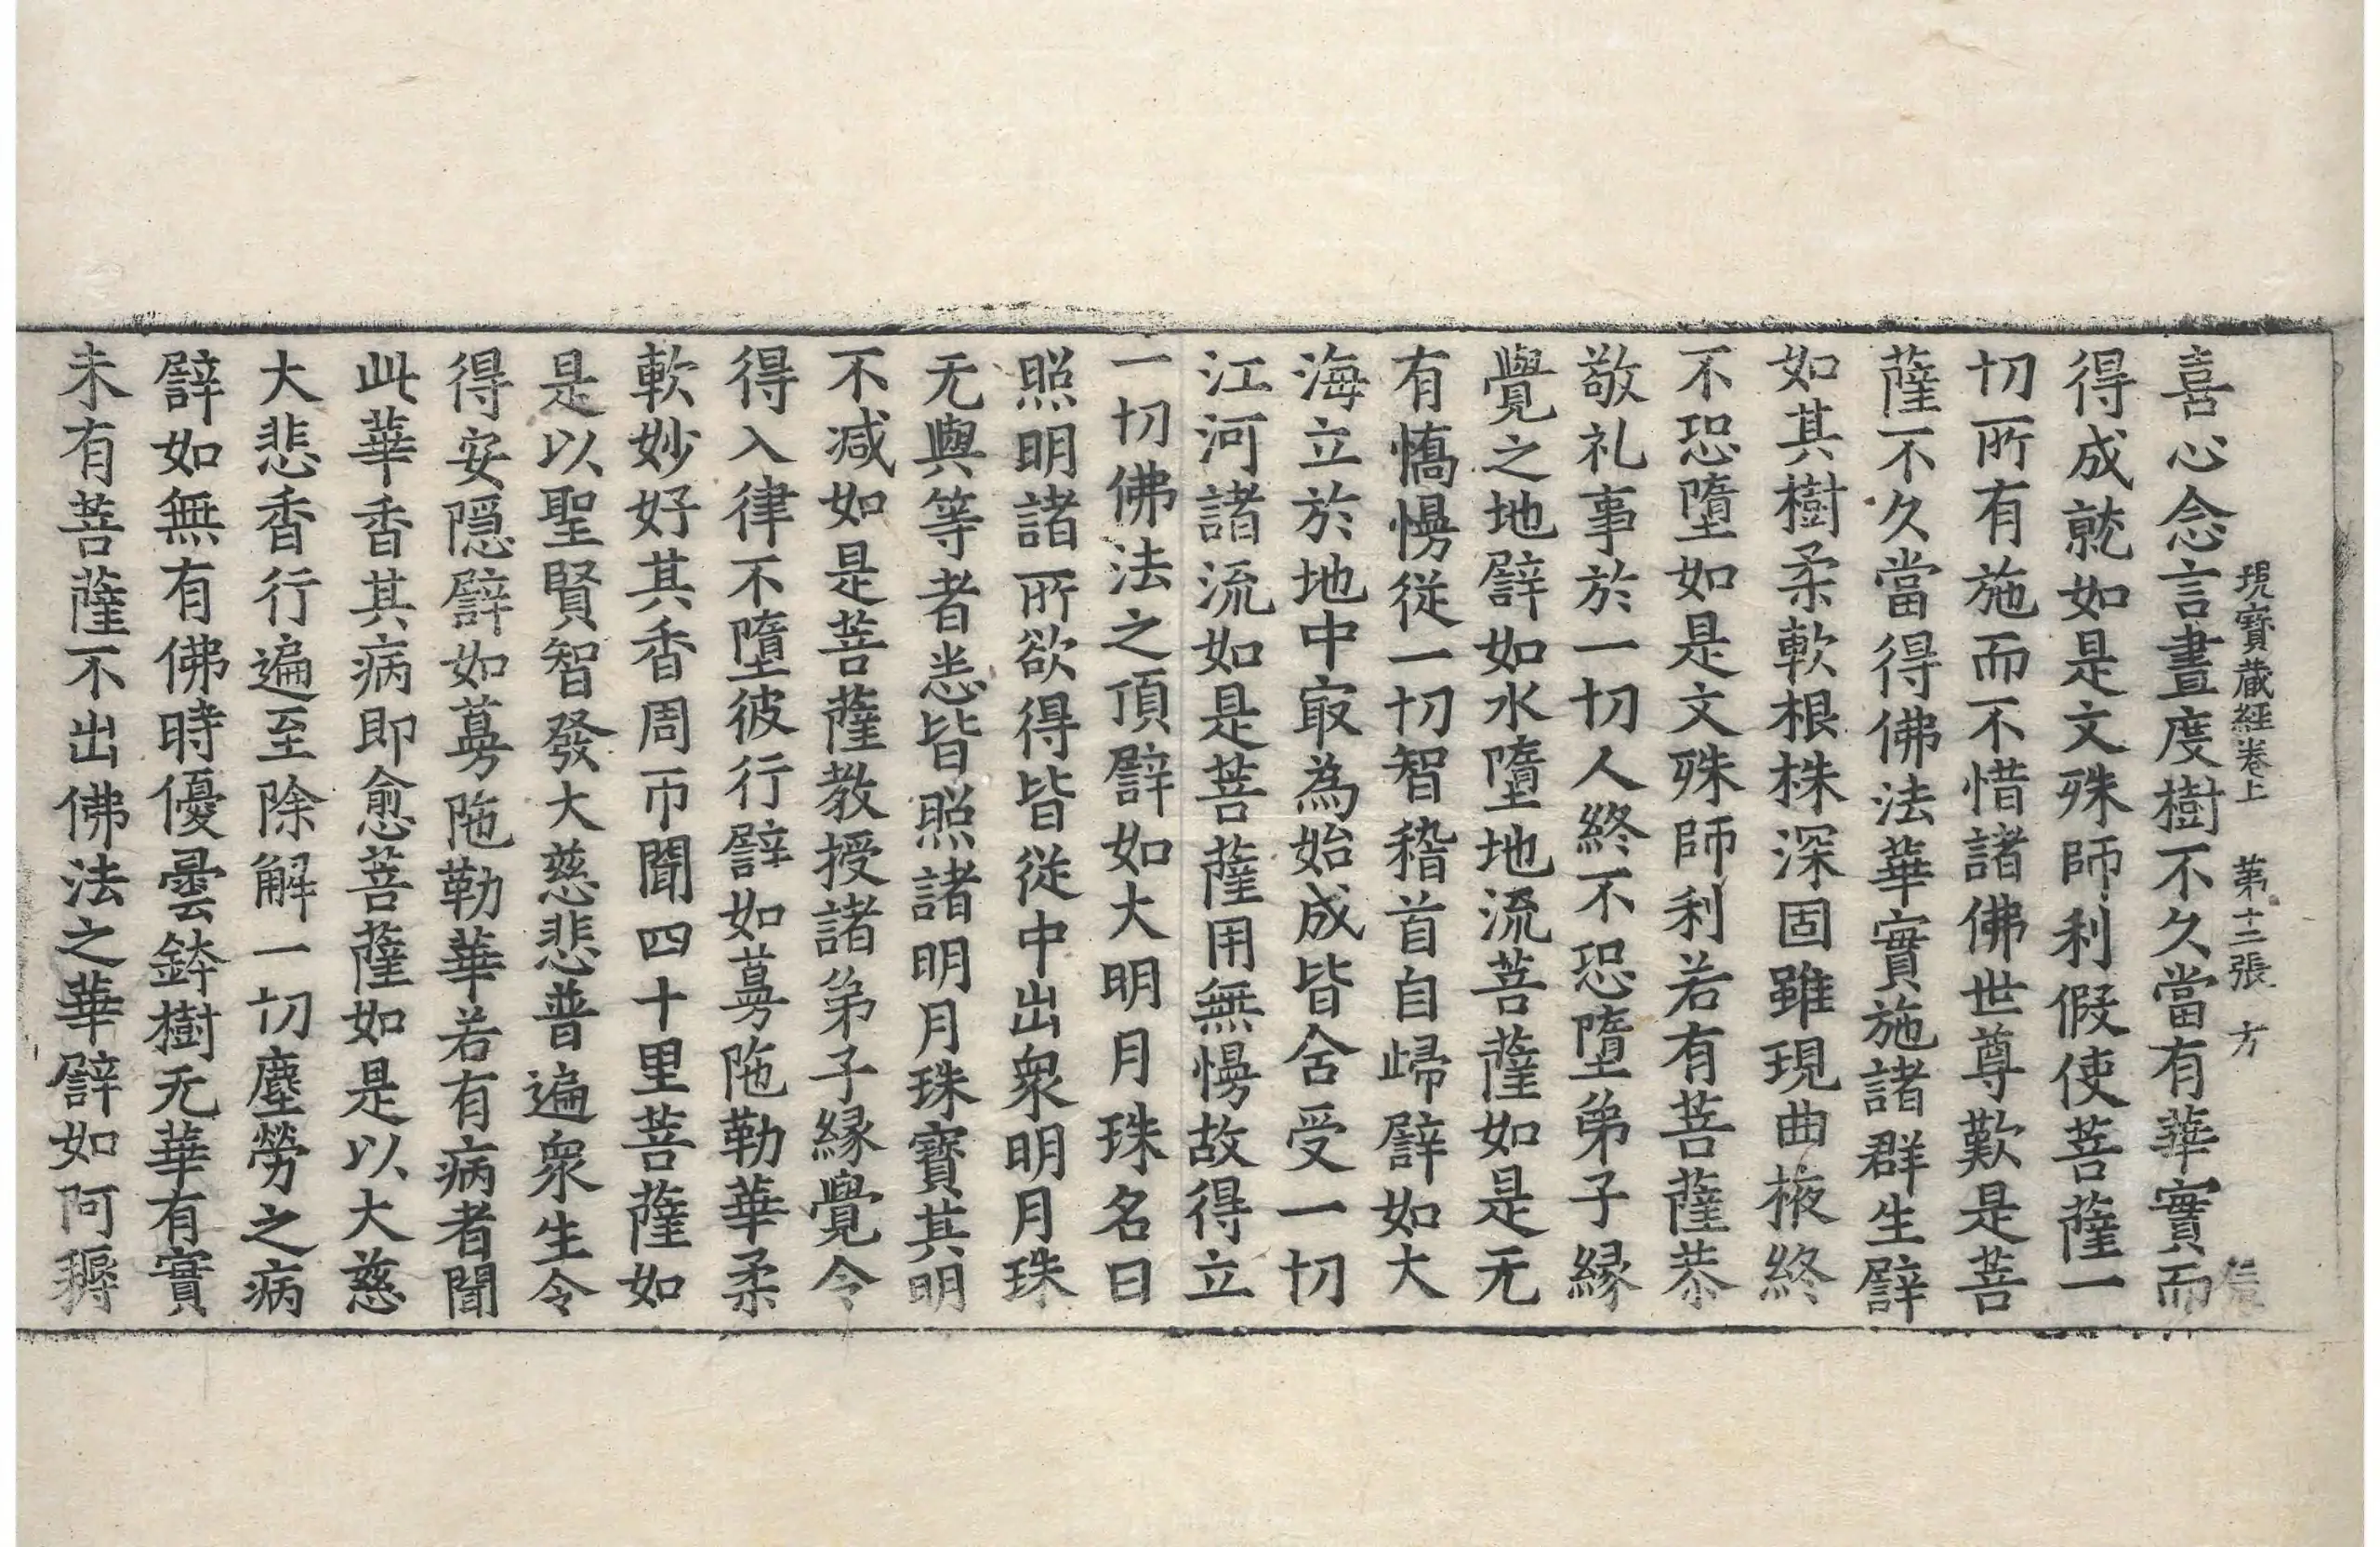 喜心念言晝度樹不久當有華實而
現寳蔵経卷上　第十二張　方
得成就如是文殊師利假使菩薩一
切所有施而不惜諸佛世尊歎是菩
薩不久當得佛法華實施諸群生譬
如其樹柔軟根株深固雖現曲掖終
不恐墮如是文殊師利若有菩薩恭
敬礼事於一切人終不恐墮弟子縁
覺之地譬如水墮地流菩薩如是无
有憍慢從一切智稽首自歸譬如大
海立於地中㝡為始成皆舍受一切
江河諸流如是菩薩用無慢故得立
一切佛法之頂譬如大明月珠名曰
照明諸所欲得皆從中出衆明月珠
无與等者恙皆照諸明月珠寳其明
不减如是菩薩教授諸弟子縁覺令
得入律不墮彼行譬如蕚陁勒華柔
軟妙好其香周帀聞四十里菩薩如
是以聖賢智發大慈悲普遍衆生令
得安隱譬如蕚陁勒華若有病者聞
此華香其病即愈菩薩如是以大慈
大悲香行遍至除解一切塵勞之病
譬如無有佛時優曇鉢樹无華有實
未有菩薩不出佛法之華譬如阿耨